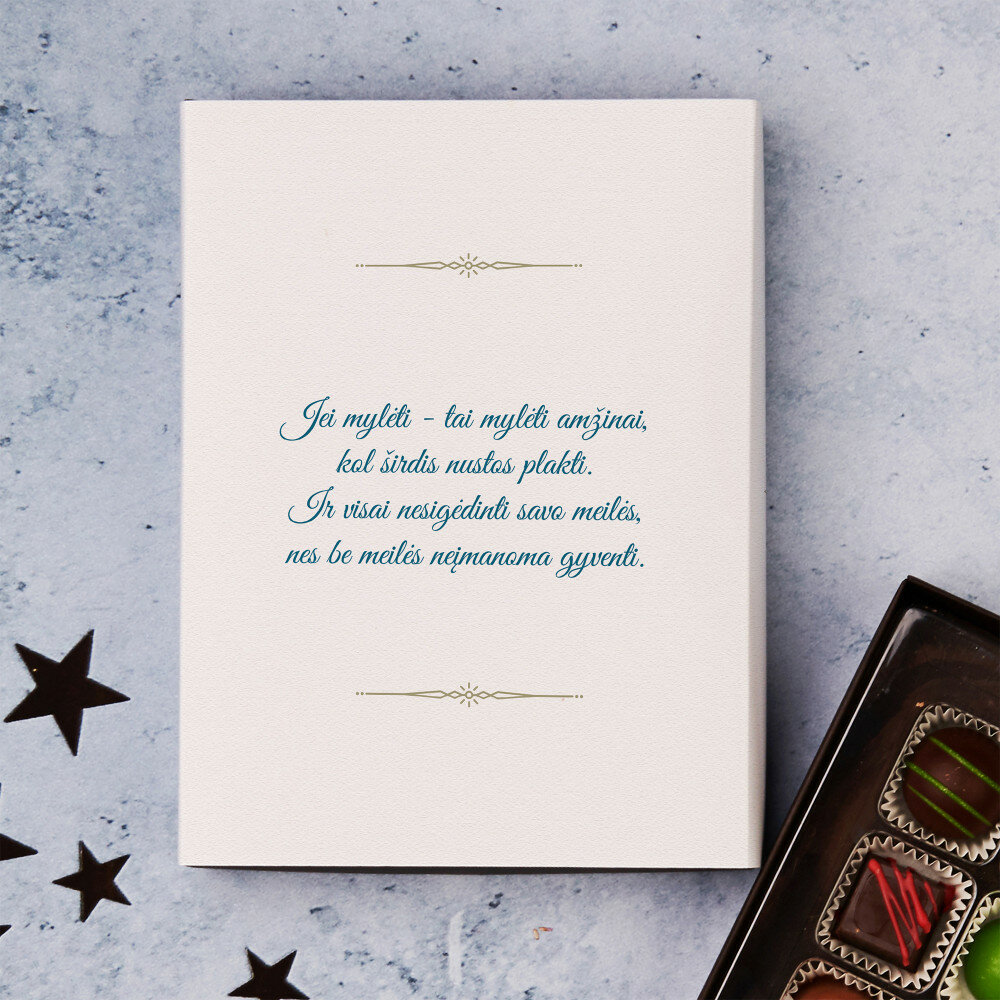 Jei mylėti - tai mylėti amžinai,
kol širdis nustos plakti.
Ir visai nesigėdinti savo meilės,
nes be meilės neįmanoma gyventi.